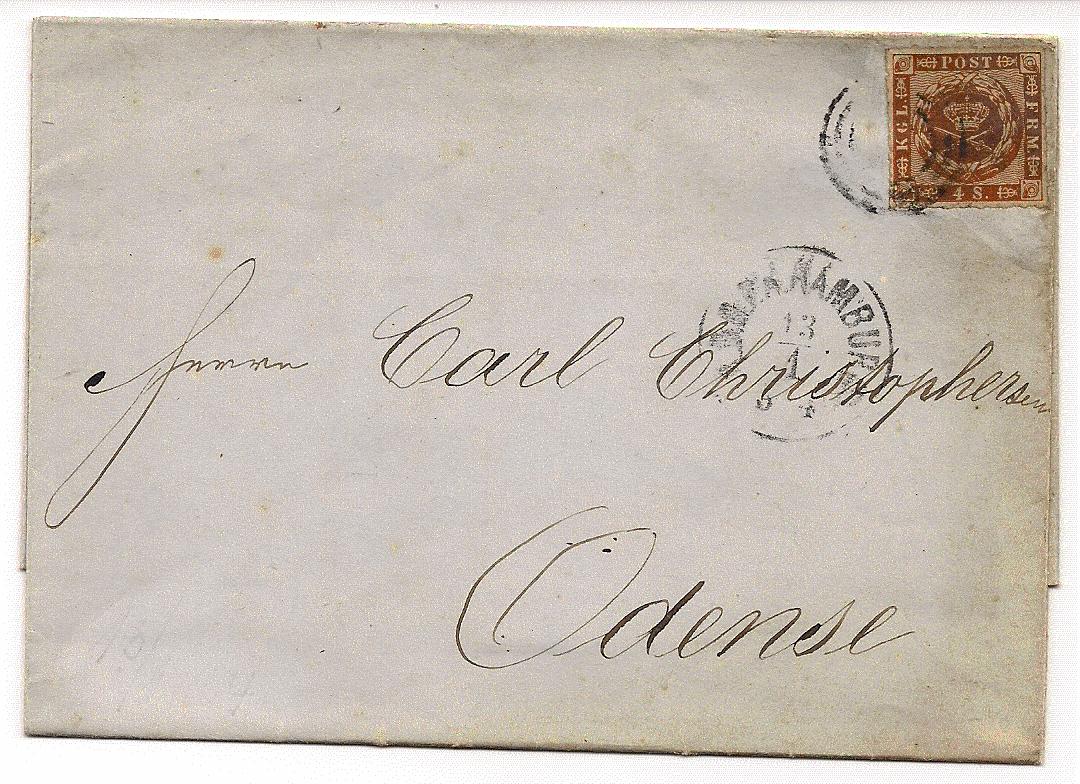 POST
KGL. FRM.
4 S.
HAMBUR
13
1
Herrn Carl Christophersen
Odense